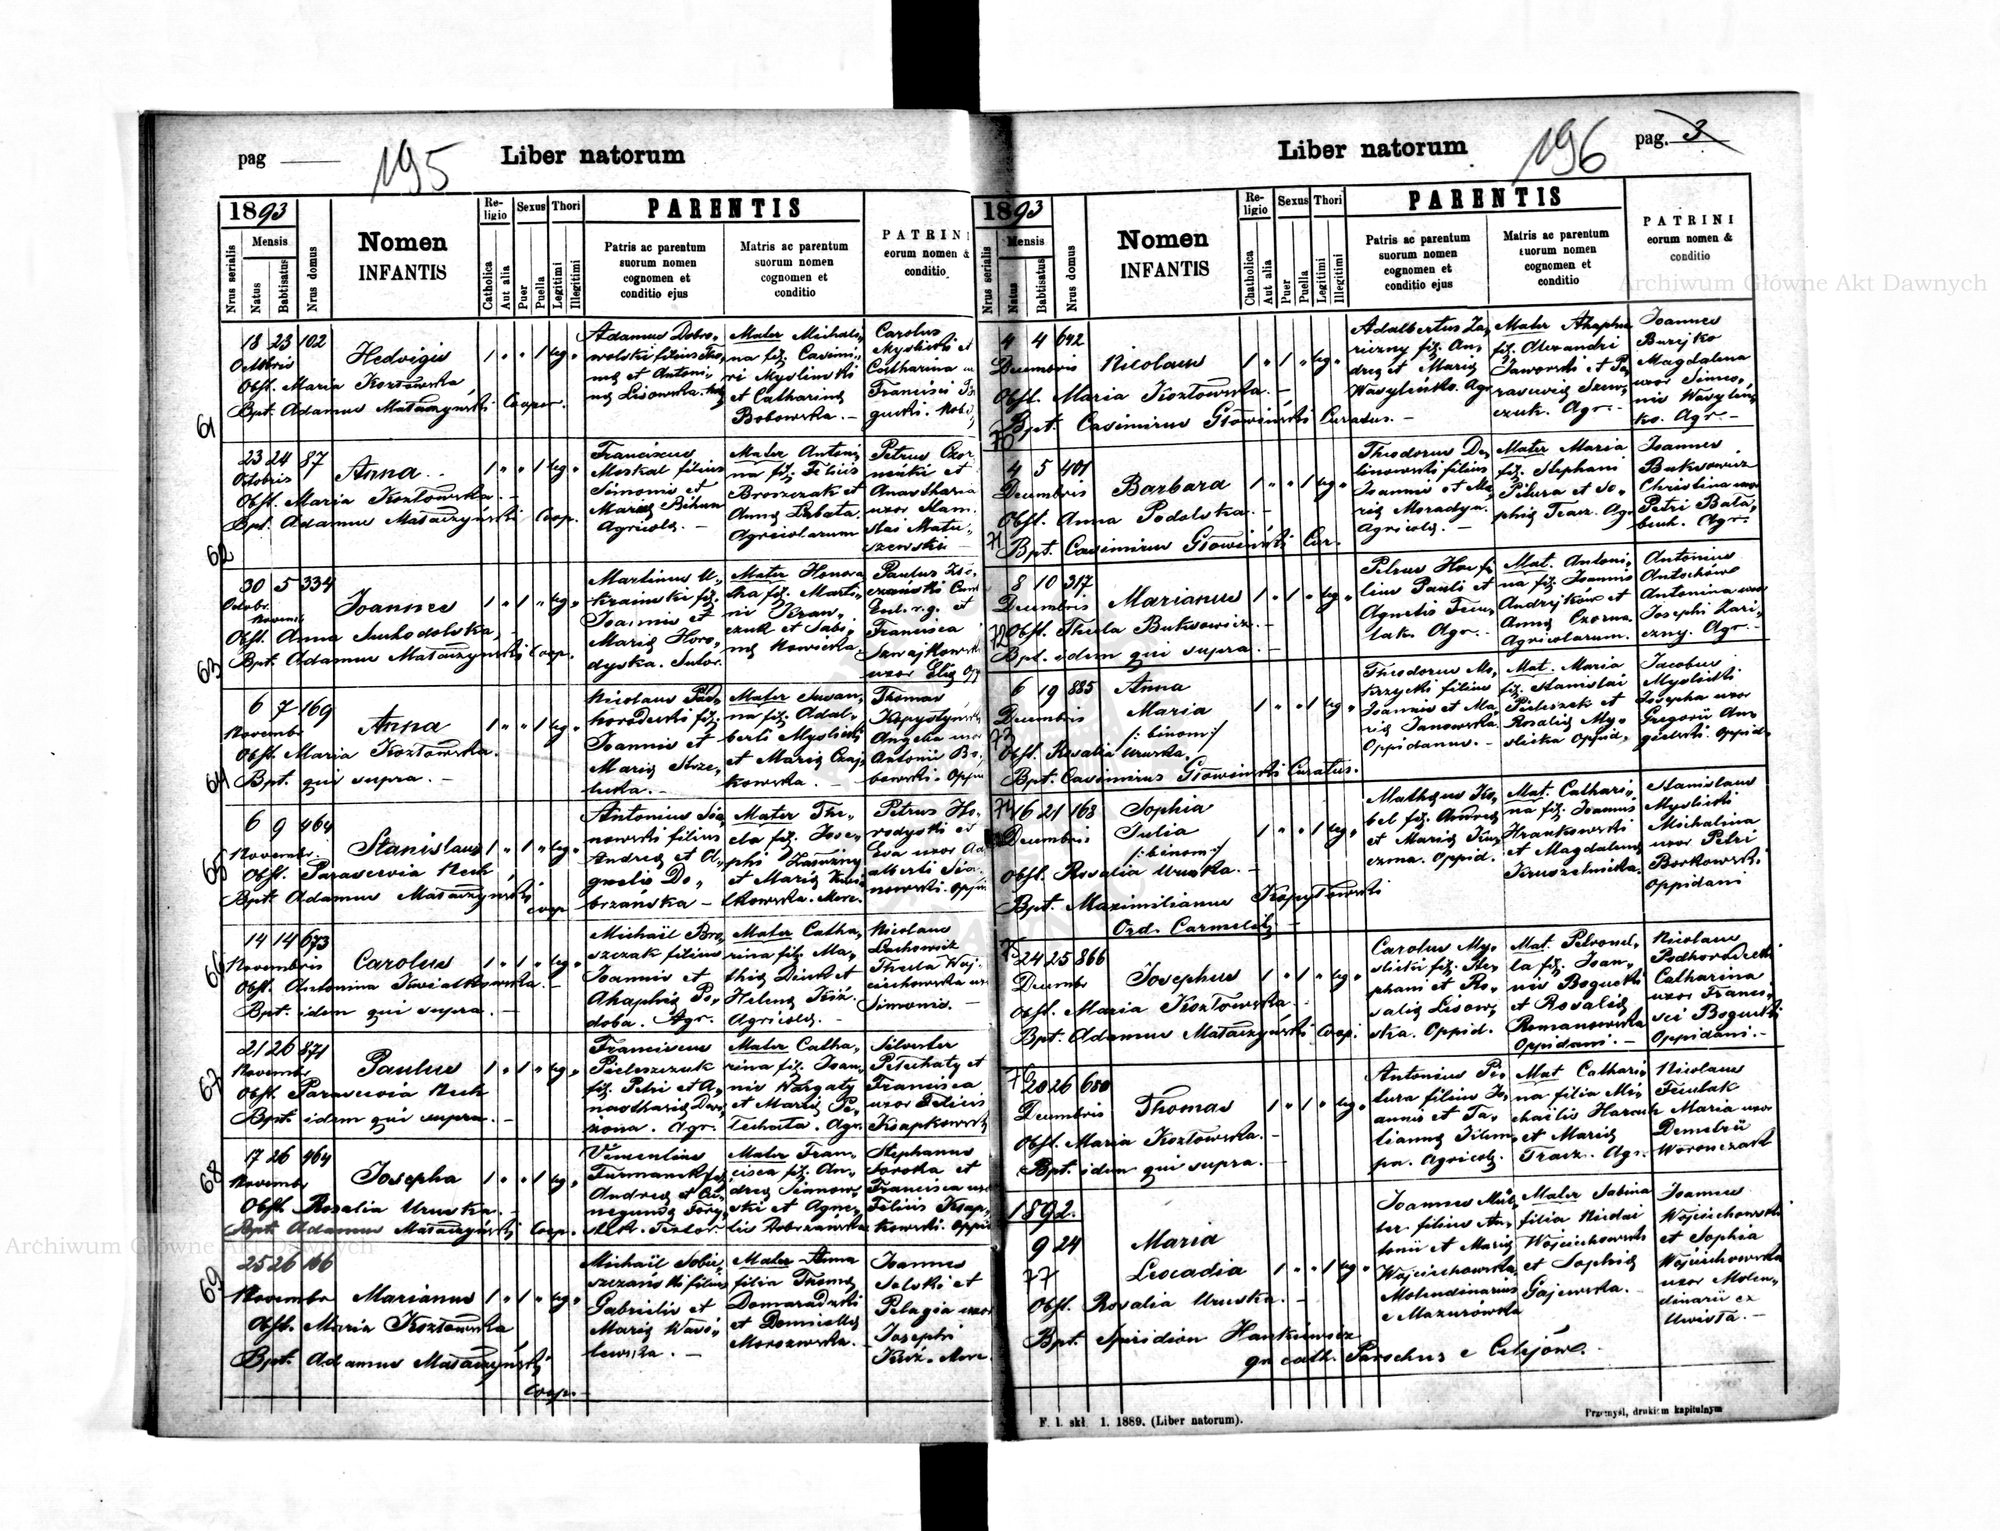 pag
195
Liber natorum
1893
Nrus serialis
Mensis
Natus
Babtisatus
Nrus domus
Nomen
INFANTIS
Re-
ligio
Catholica
Aut alia
Sexus
Puer
Puella
Thori
Legitimi
Illegitimi
PARENTIS
Patris ac parentum
suorum nomen
cognomen et
conditio ejus
Matris ac parentum
suorum nomen
cognomen et
conditio
PATRINI
eorum nomen &
conditio
61
18 23 102
Octobris
Hedvigis
1 " " 1 leg "
Obst. Maria Kozłowska
Bpt. Adamus Mataczyński Cooper.
Adamus Dobro-
wolski filius Tho-
mæ et Antoni-
næ Lisowska
Mater Michali-
na fil. Casimi-
ri Myslinski
et Catharinæ
Bobowska. -
Carolus
Myslicki et
Catharina
Francisci
62
23 24 87
Octobris
Anna
1 " " 1 leg "
Obst. Maria Kozłowska. -
Bpt. Adamus Mataczyński Coop.
Franciscus
Moskal filius
Simonis et
Mariæ Bihun
Agricolæ. -
Mater Antoni-
na fil. Felicis
Broszczak et
Annæ Labata
Agricolarum
Petrus
et
Anastharia
uxor Stani
slai Matu-
szewski
63
30 5 334
Octobr.
Novem.
Joannes
1 " 1 " leg "
Obst. Anna Suchodolska. -
Bpt. Adamus Mataczyński Coop.
Martinus U-
krainski fil.
Joannis et
Mariæ Horo-
dyska. Sutor.
Mater Honora-
tha fil. Marti-
ni Kraw-
czuk et Sabi-
næ Nowicka
Paulus
et
Francisca
uxor
64
6 7 169
Novembr.
Anna
1 " " 1 leg "
Obst. Maria Kozłowska.
Bpt. qui supra. -
Nicolaus Pod-
horodecki fil.
Joannis et
Mariæ Strze-
lecka. -
Mater Susan-
na fil. Adal-
berti Myslicki
et Mariæ Czaj-
kowska. -
Thomas
Angela uxor
Antonii Bo-
bowski. Oppid
65
6 9 464
Novembr.
Stanislaus
1 " 1 " leg "
Obst. Parascevia Kuch
Bpt. Adamus Mataczyński
coop
Antonius Sia-
nowski filius
Andreæ et A-
gnetis Do-
brzanska -
Mater The-
cla fil. Jose-
phi
et Mariæ
Petrus Ho-
rodyski et
Eva uxor Ad
alberti Sia-
nowski. Oppid
66
14 14 673
Novembris
Carolus
1 " 1 " leg "
Obst. Antonina Kwiatkowska. -
Bpt. idem qui supra. -
Michaël Bro-
szczak filius
Joannis et
Ahaphiæ Po-
doba. Agr.
Mater Catha-
rina fil. Ma-
thiæ et
Helenæ Kiż.
Agricolæ. -
Nicolaus
Lachowicz
Thecla Woj-
ciechowska uxor
Simonis. -
67
21 26 871
Novembr
Paulus
1 " 1 " leg "
Obst. Parascevia Kuch
Bpt. idem qui supra. -
Franciscus
Pieleszczuk
fil. Petri et A-
nasthariæ
Agr.
Mater Catha-
rina fil. Joan-
nis Wargaty
et Mariæ Pe-
lechata. Agr.
Silvester
Pelechaty et
Francisca
uxor Felicis
Ksapkowski
68
17 26 464
Novembr
Josepha
1 " " 1 leg "
Obst. Rosalia Uruska. -
Bpt. Adamus Mataczyński Coop.
Vincentius
Furmanek fil.
Andreæ et Cu-
negundæ
Textor.
Mater Fran-
cisca fil. An-
dreæ Sianow-
ski et Agne-
tis Dobrzańska
Stephanus
Soroka et
Francisca uxor
Felicis Ksap-
kowski. Oppid
69
25 26 166
Novembr
Marianus
1 " 1 " leg "
Obst. Maria Kozłowska
Bpt. Adamus Mataczyński
coop. -
Michaël Sobie-
szczański filius
Gabrielis et
Mariæ Wasi-
lewska. -
Mater Anna
filia Thomæ
Domaradzki
et Domicellæ
Morozowska. -
Joannes
Salski et
Pelagia uxor
Josephi
Kiż. More.
Liber natorum
196
pag. 3
1893
Nrus serialis
Mensis
Natus
Babtisatus
Nrus domus
Nomen
INFANTIS
Re-
ligio
Chatholica
Aut alia
Sexus
Puer
Puella
Thori
Legitimi
Illegitimi
PARENTIS
Patris ac parentum
suorum nomen
cognomen et
conditio ejus
Matris ac parentum
suorum nomen
cognomen et
conditio
PATRINI
eorum nomen &
conditio
Archiwum Główne Akt Dawnych
4 4 642
Decembris
Nicolaus
1 " 1 " leg "
Obst. Maria Kozłowska. -
Bpt. Casimirus Głowiński Curatus. -
70
Adalbertus Za-
riczny fil. An-
dreæ et Mariæ
Wasylinko. Agr
Mater Ahaphia
fil. Alexandri
Jaworski et Pa-
rasceviæ Szew-
czuk. Agr. -
Joannes
Burejko
Magdalena
uxor Simeo-
nis Wasylin-
ko. Agr. -
4 5 401
Decembris
Barbara
1 " " 1 leg "
Obst. Anna Podolska. -
71
Bpt. Casimirus Głowiński Cur.
Theodorus De-
linowski filius
Joannis et Ma-
riæ Moradya.
Agricolæ. -
Mater Maria
fil. Stephani
Pitura et So-
phiæ Tracz. Agr
Joannes
Buksowicz
Christina uxor
Petri Bała-
buch. Agr. -
8 10 317
Decembris
Marianus
1 " 1 " leg "
72
Obst. Thecla Buksowicz. -
Bpt. idem qui supra. -
Petrus Hoc fi-
lius Pauli et
Agnetis Fecu-
lak. Agr. -
Mat. Antoni-
na fil. Joannis
Andrejków et
Annæ Czorna.
Agricolarum. -
Antonius
Antochów
Antonina uxor
Josephi Zari-
czny. Agr. -
6 19 885
Decembris
Anna
Maria
/: binom :/
1 " " 1 leg "
73
Obst. Rosalia Uruska.
Bpt. Casimirus Głowiński Curatus.
Theodorus Mo-
krzycki filius
Joannis et Ma-
riæ Janowska.
Oppidanus. -
Mat. Maria
fil. Stanislai
Pieleszek et
Rosaliæ My-
slicka Oppid.
Jacobus
Myslicki
Josepha uxor
Gregorii An-
gielski. Oppid.
74
16 21 168
Decembris
Sophia
Julia
/: binom :/
1 " " 1 leg "
Obst. Rosalia Uruska. -
Bpt. Maximilianus Kopytkowski
Ord. Carmelit. -
Mathæus Ko-
bel fil. Andreæ
et Mariæ Kucz
czma. Oppid.
Mat. Cathari-
na fil. Joannis
Hrankowski
et Magdalenæ
Kruszelnicka.
Stanislaus
Myslicki
Michalina
uxor Petri
Borkowski
Oppidani
75
24 25 866
Decembr
Josephus
1 " 1 " leg "
Obst. Maria Kozłowska. -
Bpt. Adamus Mataczyński Coop.
Carolus My-
slicki fil. Ste-
phani et Ro-
saliæ Lisow-
ska. Oppid.
Mat. Petronel-
la fil. Joan-
nis Bogucki
et Rosaliæ
Romanowska
Oppidani. -
Nicolaus
Podhorodecki
Catharina
uxor Franci-
sci Bogucki
Oppidani. -
76
20 26 680
Decembris
Thomas
1 " 1 " leg "
Obst. Maria Kozłowska. -
Bpt. idem qui supra. -
Antonius Pi-
tura filius Jo-
annis et Ta-
tiannæ Filim-
pa. Agricolæ.
Mat Cathari-
na filia Mi-
chaëlis Harcuch
et Mariæ
Tracz. Agr.
Nicolaus
Feculak
Maria uxor
Demetrii
Woronczakt
1892.
9 24
77
Maria
Leocadia
1 " " 1 leg "
Obst. Rosalia Uruska. -
Bpt. Spiridion Hankiewicz
gr. cath. Parochus e Celejów. -
Joannes Mül-
ler filius An-
tonii et Mariæ
Wojciechowska
Molendinarius
e Mazurówka
Mater Sabina
filia Nicolai
Wojciechowski
et Sophiæ
Gajewska. -
Joannes
Wojciechowski
et Sophia
Wojciechowska
uxor Molen-
dinarii ex
Uwisła. -
Archiwum Główne Akt Dawnych
F. l. skł. 1. 1889. (Liber natorum).
Przemyśl, drukiem kapitulnym